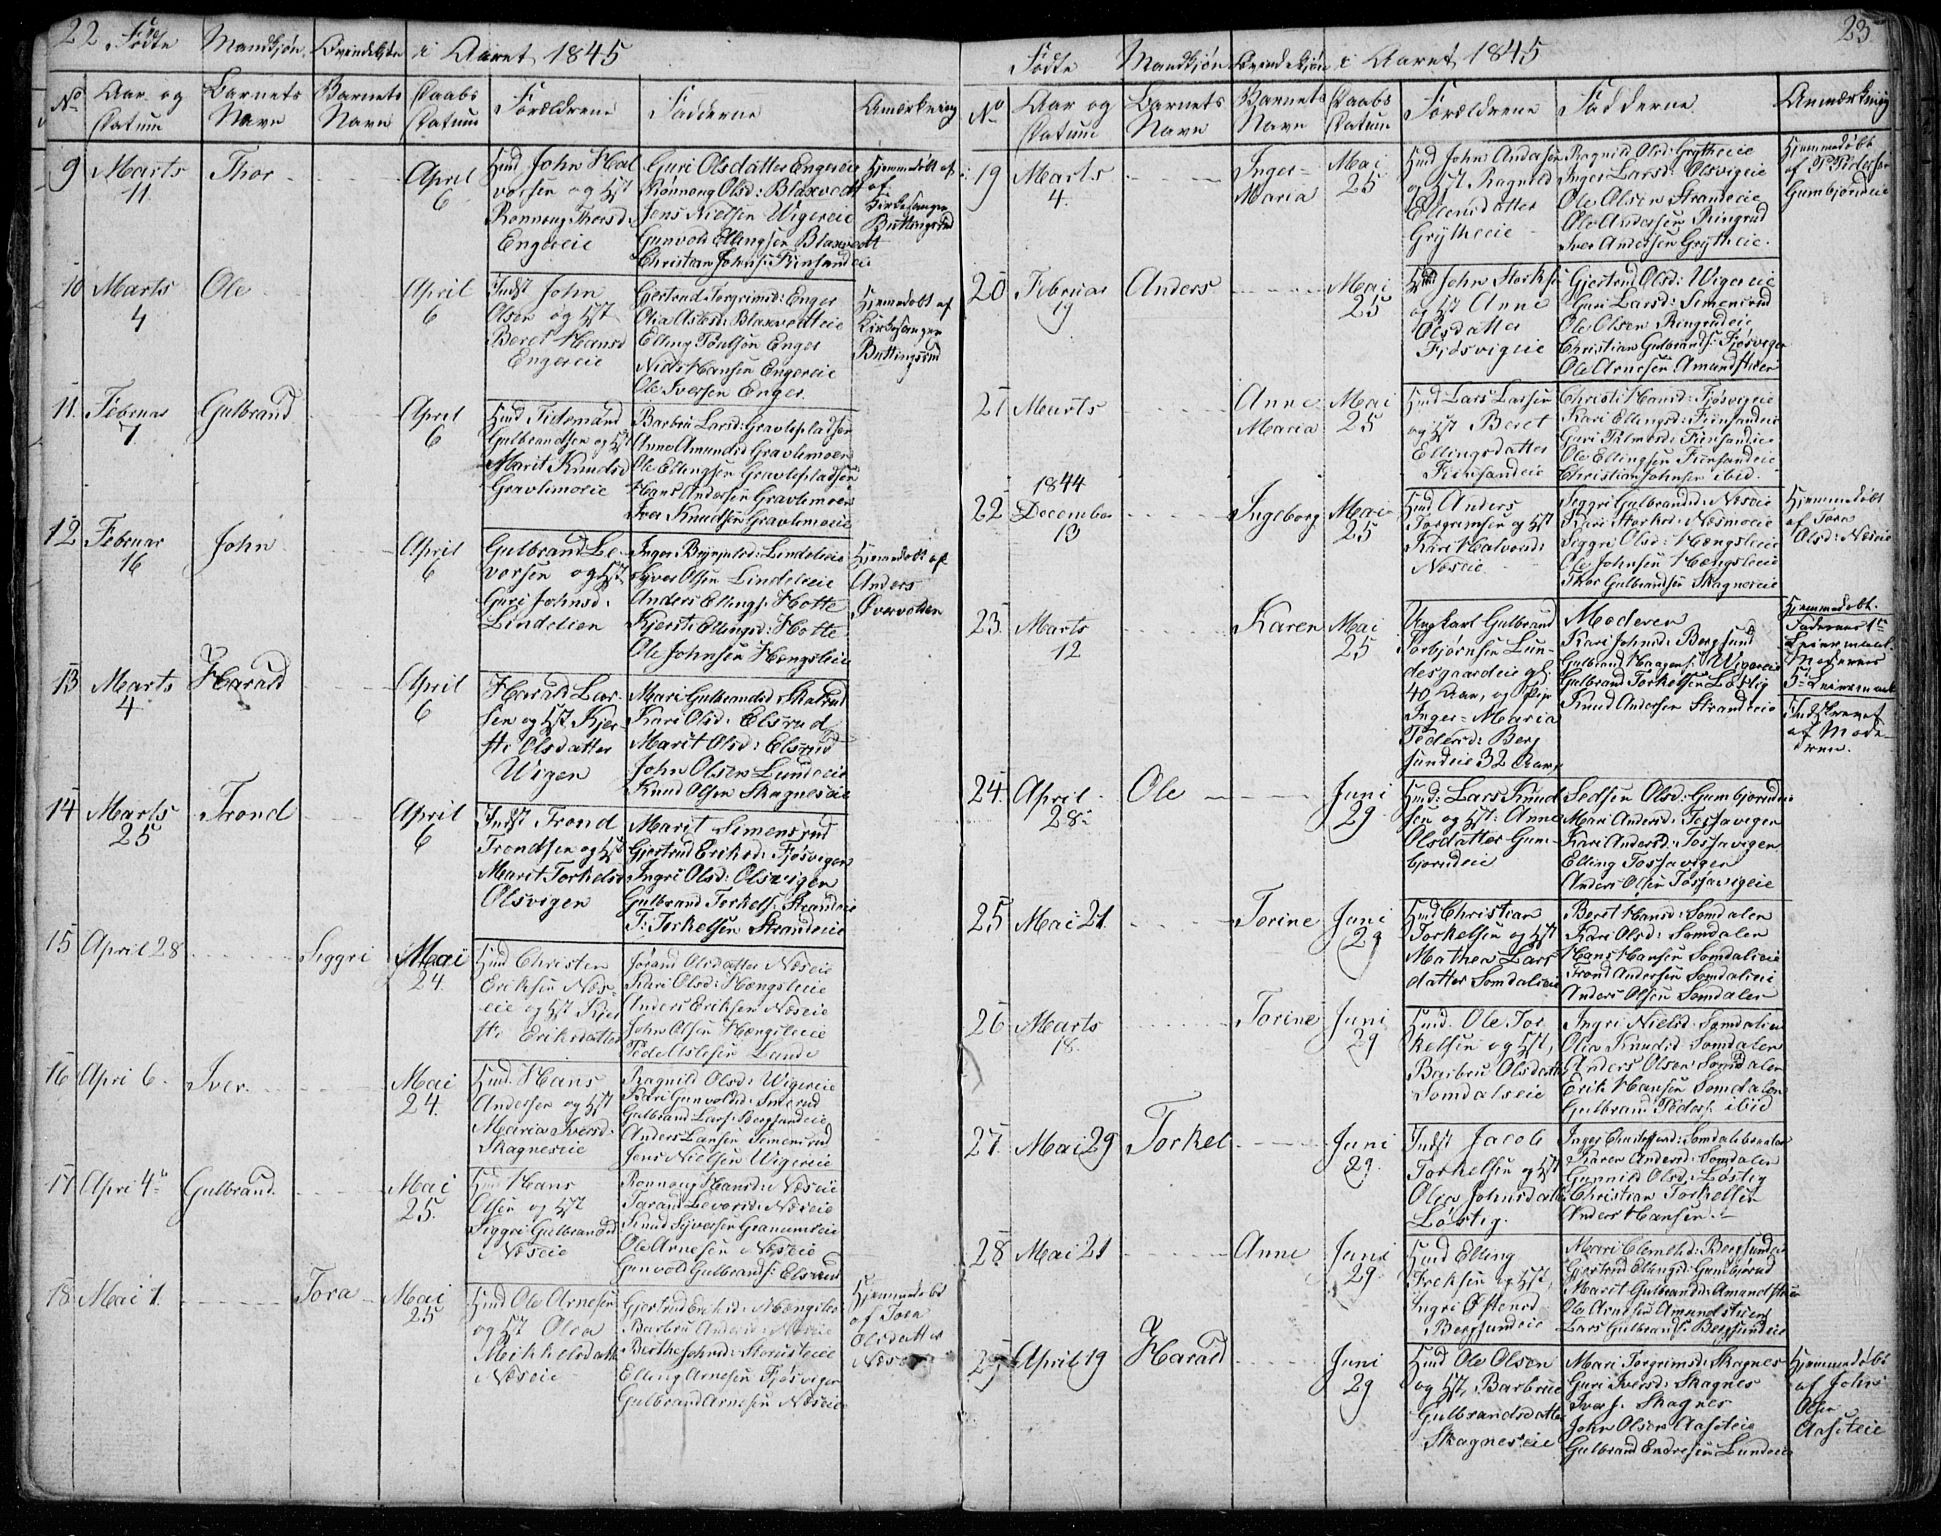 22 Födte Mandkjön Qvindekjön i Aaret 1845
No
Aar og Datum
Barnets Navn
Barnets Navn
Daabs Datum
Forældrene
Fadderne
Anmærkning
9 Marts 11
Thor
April 6
Huusm. John Hal
vorsen og Hst
Ronnoug Thorsd
Engereie
Guri Olsdatter Engereie
Ronnoug Olsd: Blaxvedt
Jens Nielsen Wigereie
Gunvold Ellingsen Blaxvedt
Christian Johns: Fiinsandeie
Hjemmedöbt af
Kirkesanger
Buttingsrud
10 Marts 4
Ole
April 6
Indst John
Olsen og Hst
Beret Hansd
Engereie
Gjertrud Torgrimsd: Enger
Olia Aslesd: Blaxvedteie
Elling Poulsön Enger
Niels Hansen Engereie
Ole Iversen Enger
Hjemmedöbt af
Kirkesanger
Buttingsrud
11. Februar 7
Gulbrand
April 6
Gulbrandsen og Hst
Marit Knudsd
Gravlimoeie
Barbru Larsd: Gravlepladsen
Anne Amundsd Gravlimoen
Ole Ellingsen Gravlepladsen
Hans Andersen Gravlimoen
Iver Knudsen Gravlimoeie
12 Februar 16
John
April 6
Gulbrand Le
vorsen og Hst
Guri Johnsd:
Lindelien
Lindelieie
Syver Olsen Lindelieie
Anders Ellings: Hotte
Kjersti Ellingsd: Hotte
Ole Johnsen Hængslieie
Hjemmedöbt af
Anders
Övervolden
13 Marts 4
Harald
April 6
Harald Lar-
sen og Hst Kjer-
sti Olsdatter
Wigen
Mari Gulbrandsd Skalrud
Kari Olsd: Elsrud
Marit Olsd: Elsrud
John Olsen Lundeie
Knud Olsen Skagneseie
14 Marts 25
Trond
April 6
Indst Trond
Trondsen og Hst
Marit Torkelsd
Olsvigen
Marit Simensrud
Gjertrud Eriksd: Fjösvigen
Ingri Olsd: Olsvigen
Gulbrand Torkels: Strandeie
T: Torkelsen Strandeie
15 April 28
Siggri
Mai 24.
Huusm. Christen
Eriksen Næs-
eie og Hst Kjer
sti Eriksdatter
Jörand Olsdatter Næseie
Kari Olsd: Hængslieie
Anders Eriksen Næseie
John Olsen Hængslieie
Lunde
16 Apri 6.
Iver.
Mai 24.
Huusm. Hans
Andersen og Hst
Maria Iversd.
Skagneseie
Ragnild Olsd: Wigereie
Kari Gunvoldsd: Smerud
Gulbrand Lars: Bergsundeie
Anders Larsen Simensrud
Jens Nielsen Wigereie
17 Apri 4.
Gulbrand
Mai 25.
Huusm Hans
Olsen og Hst
Siggri Gulbrandsd
i Næseie
Ronnoug Hansd: Næseie
Taran Levorsd: Næseie
Knud Syversen Granumseie
Ole Arnesen Næseie
Gunvold Gulbrands: Elsrud
18 Mai 1.
Tora
Mai 25
Huusm Ole Arnesen
og Hst Olea
Mikkelsdatt
i Næseie
Gjertrud Eriksd: Hængslie
Barbru Andersd: Næseie
Elling Arnesen Fjösvigen
Gulbrand Arnesen Næseie
Hjemmedöbt
af Tora
Olsdatter
Næseie
23
Födte Mandkjön Qvindekjön i Aaret 1845
No
Aar og Datum
Barnets Navn
Barnets Navn
Daabs Datum
Forældrene
Fadderne
Anmærkning
19 Marts 4.
Inger-
Maria
Mai 25
Huusm John Andersen
og Hst. Ragnild
Ellensdatter
Grytheeie
Ragnild Olsd: Grytheeie
Inger Larsd: Olsvigeie
Ole Olsen Strandeie
Ole Andersen Ringrud
Iver Andersen Grytheie.
Hjemmedöbt
Gumbjördeie
20 Februar 19
Anders
Mai 25
Huusm John Storks:
og Hst Anne
Olsdatter
Fjösvigeie
Gjertrud Olsd: Wigereie
Guri Larsd: Simensrud
Ole Olsen Ringrudeie
Christian Gulbrands: Fjösvigen
Ole Arnesen Amundstuen
21 Marts
Anne
Maria
Mai 25
Huusm Lars Larsen
og Hst Beret
Ellingsdatter
Fiinsandeie
Christi Hansd: Fjösvigeie
Kari Ellingsd: Fiinsandeie
Ole Ellingsen Fiinsandeie
Christian Johnsen ibid.
1844
22 December 13
Ingeborg
Mai 25
Huusm Anders
Torgrimsen og Hst
Kari Halvorsd:
Næseie
Siggri Gulbrandsd: Næseie
Kari Storksd: Næsmoeie
Siggri Olsd: Hængslieie
Ole Johnsen Hængslieie
Thor Gulbrandsen Skagneseie
Hjemmedöbt
af Tora
Olsd: Næseie
23. Marts 12
Karen
Mai 25
Ungkarl Gulbrand
Torbjörnsen Lun-
desgaardeie
40 Aar, og Pige
Inger-Maria
Pedersd: Berg
sundeie 32 Aar,
Moderen
Kari Johnsd: Bergsund
Gulbrand Haagens: Wigereie
Gulbrand Torkelsen Löstig
Knud Andersen Strandeie
Hjemmedöbt.
Faderens 1te
Leiermaal.
Moderens
Leiermaal
Indskrevet
af Mode-
dren.
24. April 28
Ole
Juni 29
Huusm: Lars Knud
sen og Hst: Anne
Olsdatter Gum-
bjorudeie
Sedsen Olsd: Gumbjorudeie
Mari Andersd: Tossavigen
Kari Andersd: Tossavigen
Elling Tossavigen
Anders Olsen Tossavigeie
25 Mai 21.
Torine
Juni 29
Huusm Christian
Torkelsen og Hst
Mathea Lars
datter Somdaleie
Beret Hansd: Somdalen
Kari Olsd: Somdalen
Hans Hansen Somdaleie
Trond Andersen Somdaleie
Anders Olsen Somdalen
26 Marts 18.
Torine
Juni 29
Huusm. Ole Tor
kelsen og Hst,
Barbru Olsdatt
Somdalseie
Ingri Nielsd: Somdalen
Olia Knudsd: Somdalen
Anders Olsen Somdalen
Erik Hansen Somdalen
Gulbrand Peders: ibid
27. Mai 29
Torkel
Juni 29.
Indst Jacob
Torkelsen og Hst
Olea Johnsdatt
Löstig.
Karen Andersd: Somdalen
Gunnild Olsd: Löstig
Christian Torkelsen
Anders Hansen.
28 Mai 21
Anne
Juni 29
Huusm Elling
Ereksen og Hst,
Ingri Östensd
Bergsundeie
Mari Clemetsd: Bergsundeie
Gjertrud Ellingsd: Gumbjorud
Marit Gulbrandsd: Amundstuen
Ole Arnesen Amundstuen
Lars Gulbrands: Bergsundeie
29 April 19
Harald
Juni 29
Huusm Ole Olsen
og Hst, Barbrue
Gulbrandsdatter
Skagneseie
Mari Torgrimsd: Skagnes
Guri Iversd: Skagnes
Iver J. Skagnes
John Olsen Aaseteie
Gulbrand Endresen Lundeie
Hjemmedöbt
af John
Olsen
Aaseteie